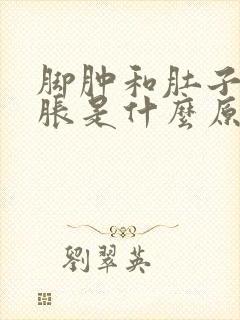 脚肿和肚子
脹是什麽原
劉翠英